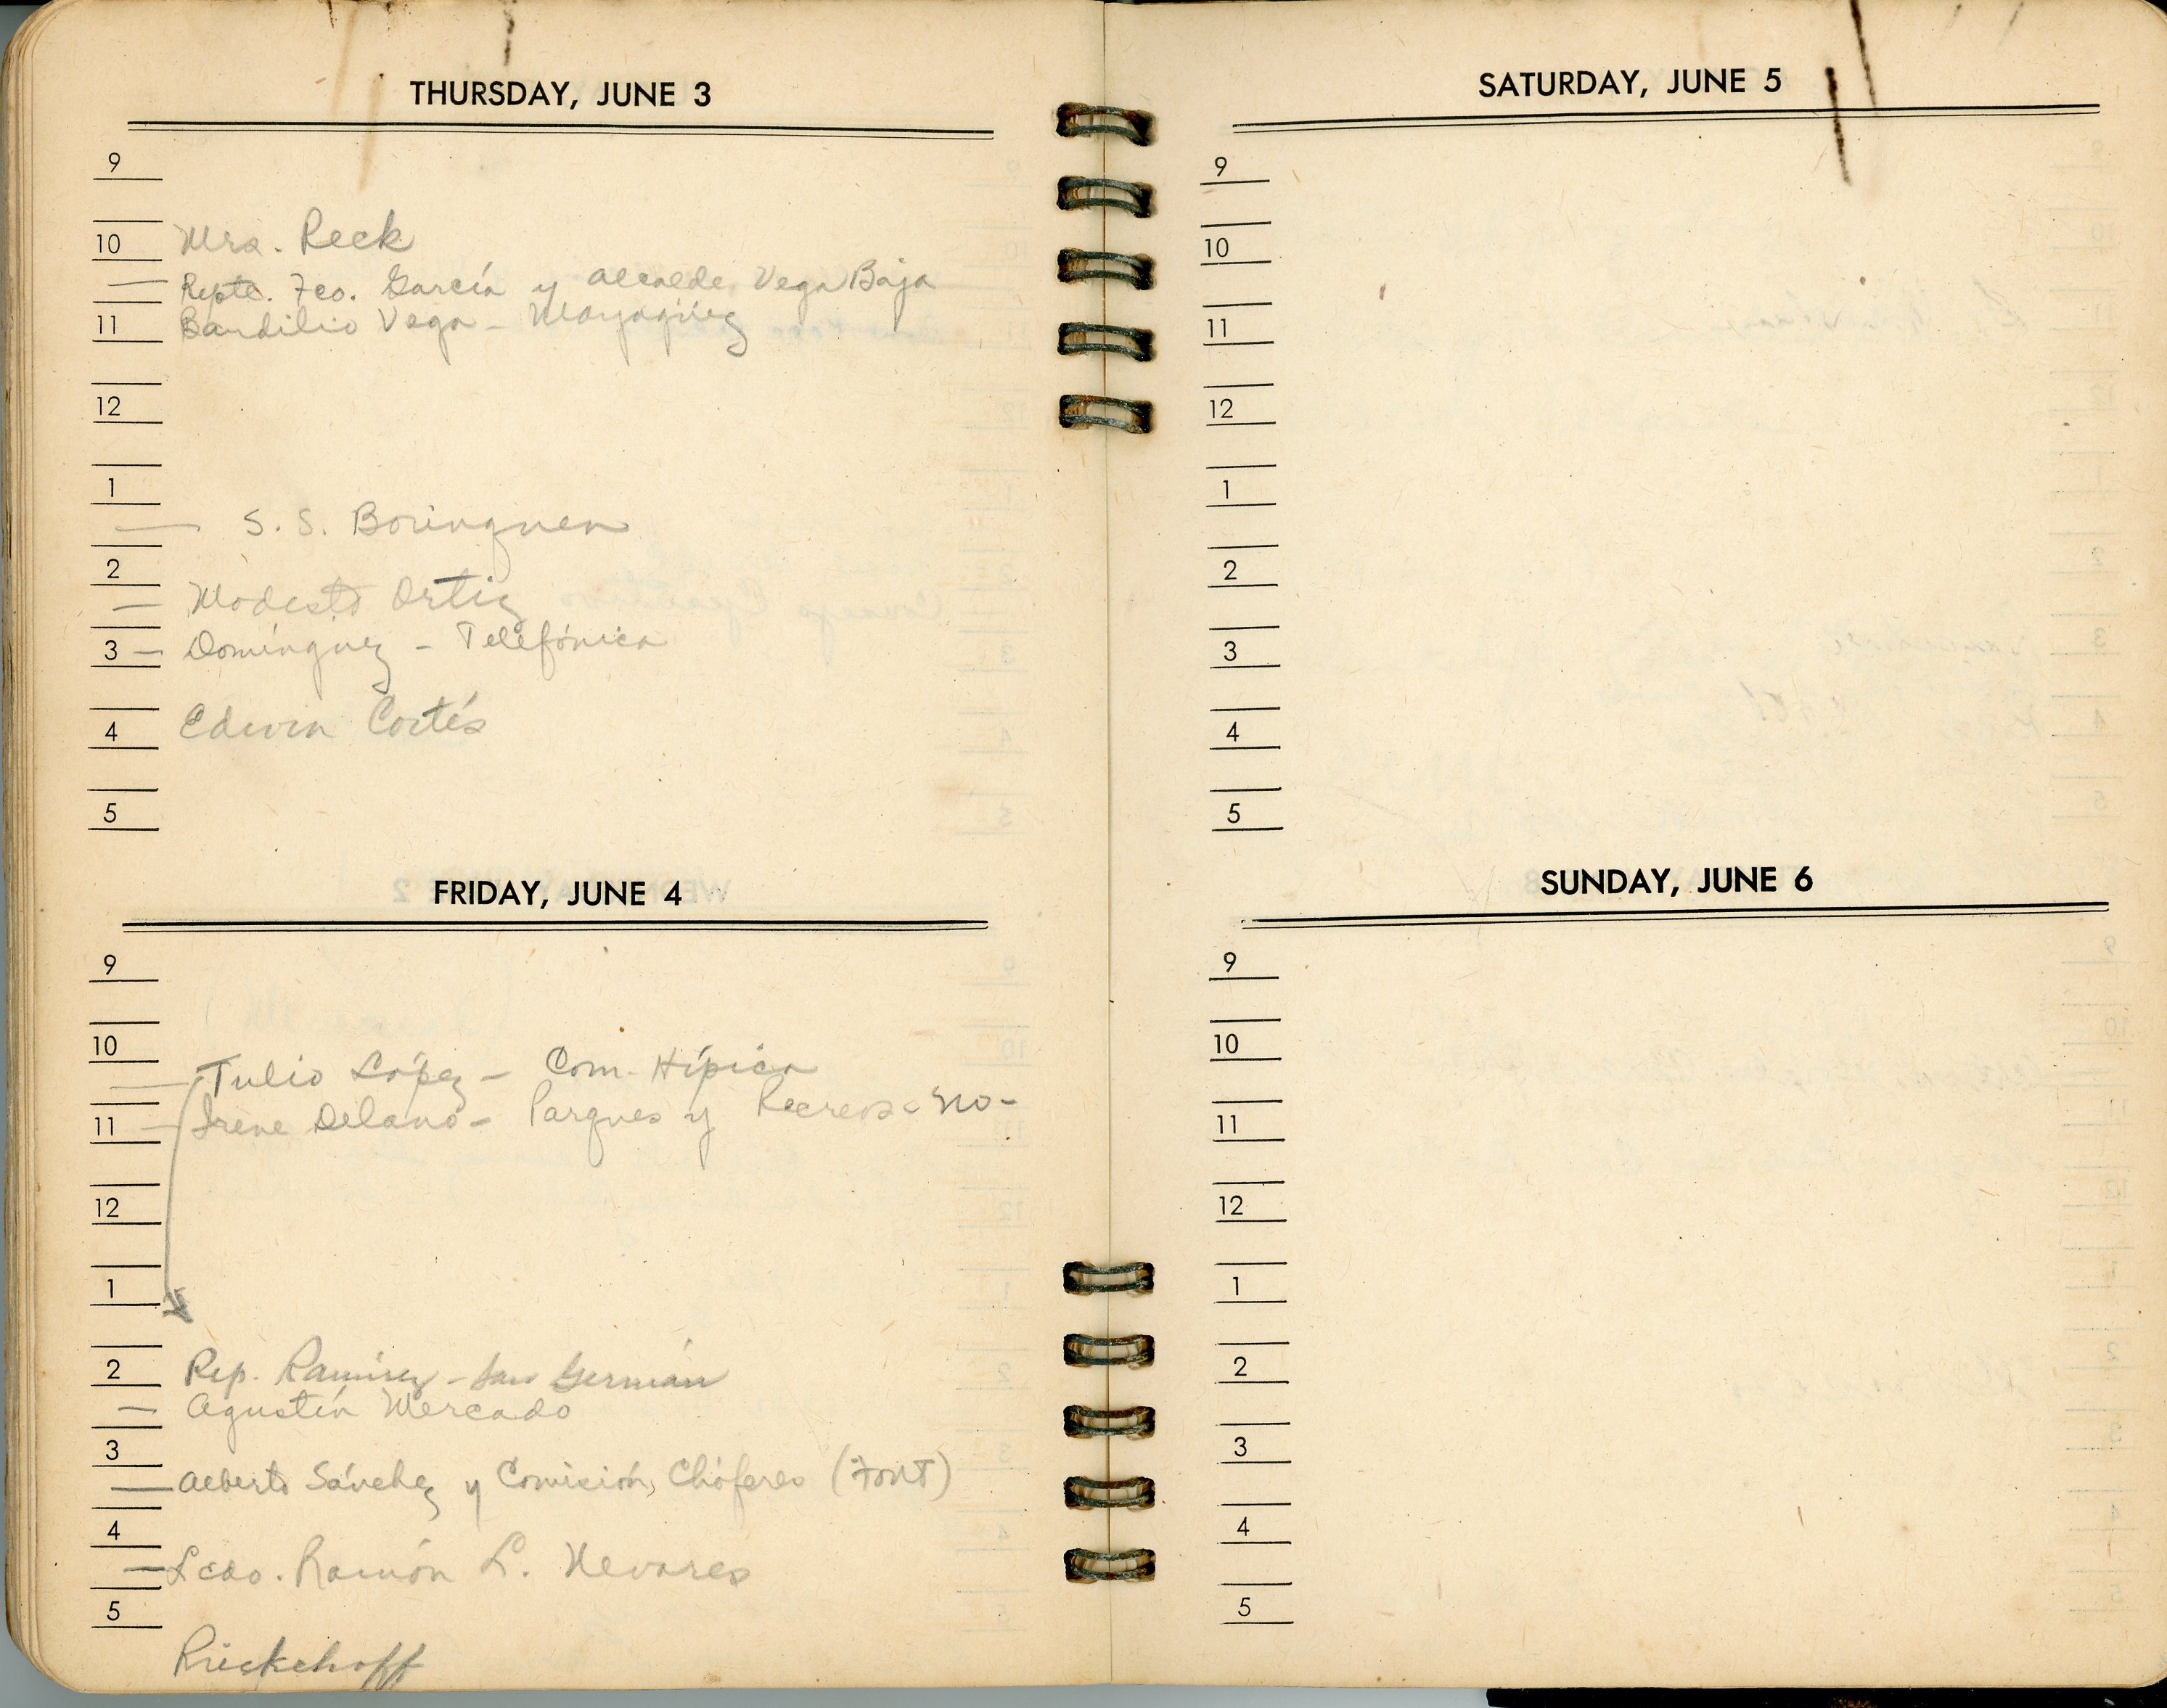 THURSDAY, JUNE 3
9
10 Mrs. Reck
Repte. Fco. García y Alcalde Vega Baja
11 Baudilio Vega - Mayagüez
12
1
S. S. Borinquen
2
Modesto Ortiz
3 - Domínguez - Telefónica
4 Edwin Cortés
5
FRIDAY, JUNE 4
9
10
Tulio López - Com. Hípica
11 Irene Delano - Parques y Recreos - no -
12
1
2 Rep. Ramírez - San Germán
Agustín Mercado
3
Alberto Sánchez y Comisión Chóferes (Font)
4
Lcdo. Ramón L. Nevares
5
Rieckehoff
SATURDAY, JUNE 5
9
10
11
12
1
2
3
4
5
SUNDAY, JUNE 6
9
10
11
12
1
2
3
4
5